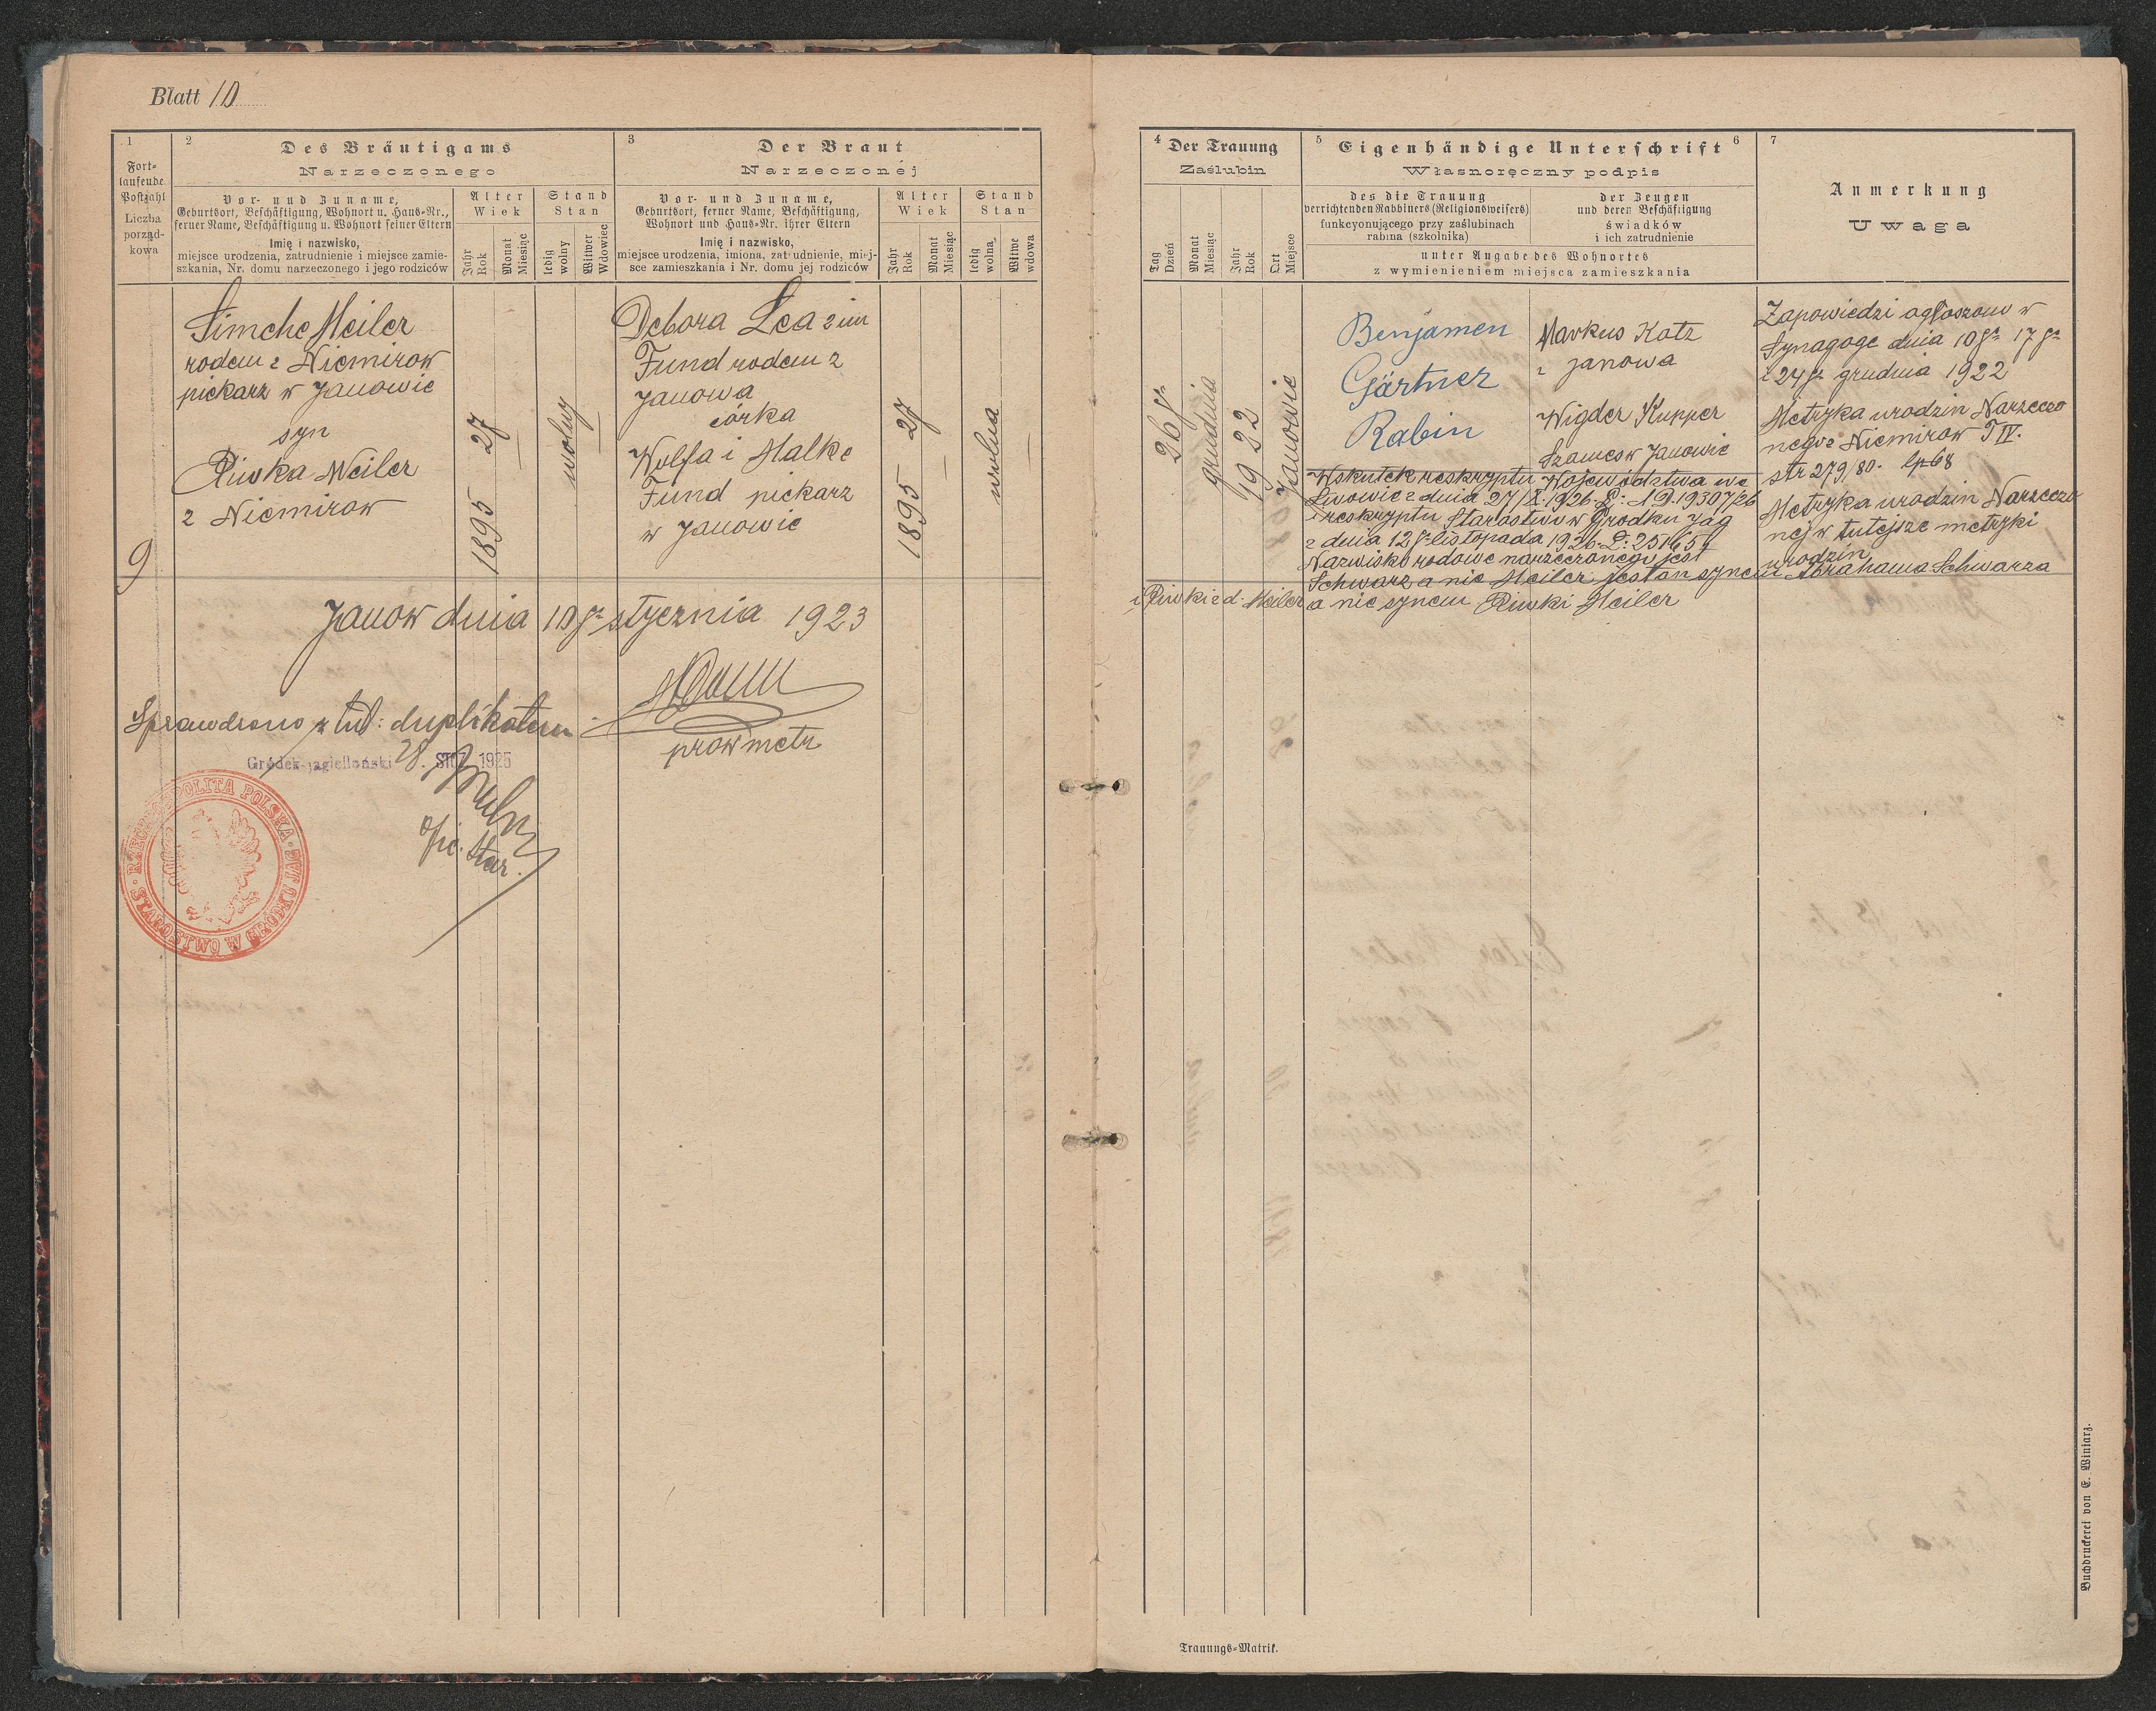 Blatt 10
1
Fort-
laufende
Postzahl
Liczba
porząd-
kowa
2
Des Bräutigams
Narzeczonego
Vor- und Zuname,
Geburtsort, Beschäftigung, Wohnort u. Haus-Nr.,
ferner Name, Beschäftigung u. Wohnort seiner Eltern
Imię i nazwisko,
miejsce urodzenia, zatrudnienie i miejsce zamie-
szkania, Nr. domu narzeczonego i jego rodziców
Alter
Wiek
Jahr
Rok
Monat
Miesiąc
Stand
Stan
ledig
wolny
Witwer
Wdowiec
3
Der Braut
Narzeczonéj
Vor- und Zuname,
Geburtsort, ferner Name, Beschäftigung,
Wohnort und Haus-Nr. ihrer Eltern
Imię i nazwisko,
miejsce urodzenia, imiona, zatrudnienie, miej-
sce zamieszkania i Nr. domu jej rodziców
Alter
Wiek
Jahr
Rok
Monat
Miesiąc
Stand
Stan
ledig
wolna
Witwe
wdowa
9
Simche Meiler
rodem z Niemirow
piekarz w Janowie
syn
Riwka Meiler
z Niemirow
1895 27
—
wolny
—
Debora Lea 2 im
Fund rodem z
Janowa
córka
Wolfa i Malke
Fund piekarz
w Janowie
1895 27
—
wolna
—
Janow dnia 10go stycznia 1923
prow metr
Sprawdzono z tut: duplikatem
Gródek-Jagielloński 28. STYZ. 1925
Star.
RZECZPOSPOLITA POLSKA
STAROSTWO W GRÓDKU JAG.
4
Der Trauung
Zaślubin
Tag
Dzień
Monat
Miesiąc
Jahr
Rok
Ort
Miejsce
5
Eigenhändige Unterschrift
6
Własnoręczny podpis
des die Trauung
verrichtenden Rabbiners (Religionsweisers)
funkcyonującego przy zaślubinach
rabina (szkolnika)
der Zeugen
und deren Beschäftigung
świadków
i ich zatrudnienie
unter Angabe des Wohnortes
z wymienieniem miejsca zamieszkania
7
Anmerkung
Uwaga
26go
grudnia
1922
Janowie
Benjamen
Gärtner
Rabin
Markus Katz
z Janowa
Wigder Kupper
Szames w Janowie
Zapowiedzi ogłoszono w
Synagoge dnia 10go 17go
i 24go grudnia 1922
Metryka urodzin Narzeczo
nego z Niemirow T IV.
str 279/80. lp 68
Metryka urodzin Narzeczo
nej w tutejsze metryki
urodzin
Wskutek reskryptu Województwa we
Lwowie z dnia 27/X.1926. L: AD.19307/26
i reskryptu Starostwo w Grodku Jag
z dnia 12go listopada 1926. L: 25165
Nazwisko rodowe narzeczonego jest
Schwarz a nie Meiler jest on synem Abrahama Schwarza
i Riwki z d. Meiler a nie synem Riwki Meiler
Trauungs-Matrik.
Buchdruckerei von E. Winiarz.